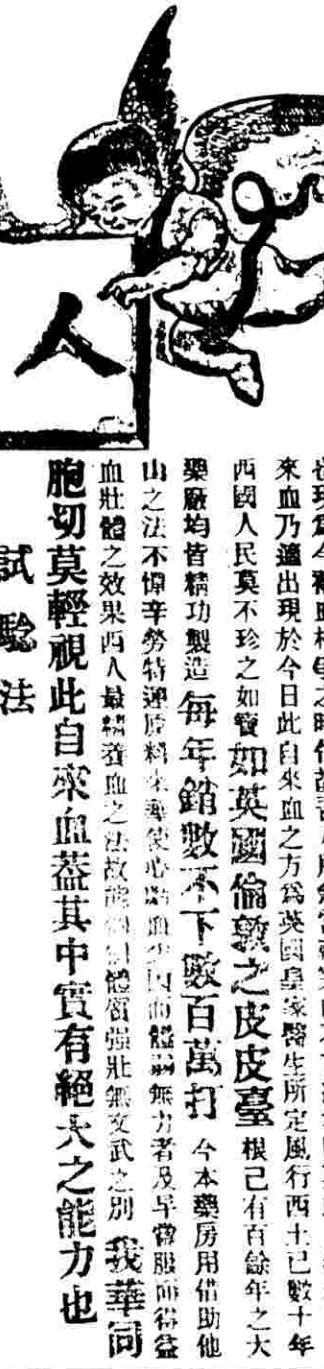 人
來血乃適出現於今日此自來血之方為英國皇家醫生所定風行西土已數十年
西國人民莫不珍之如寶如英國倫敦之皮皮臺根己有百餘年之大
藥廠均皆精功製造每年銷數不下數百萬打今本藥房用借助他
山之法不憚辛勞特運原料來華使心
無力者及早當服而得益
血壯體之效果西人最
血之法故
體質強壯無文武之別我華同
胞切莫輕視此自來血蓋其中實有絕大之能力也
試驗法